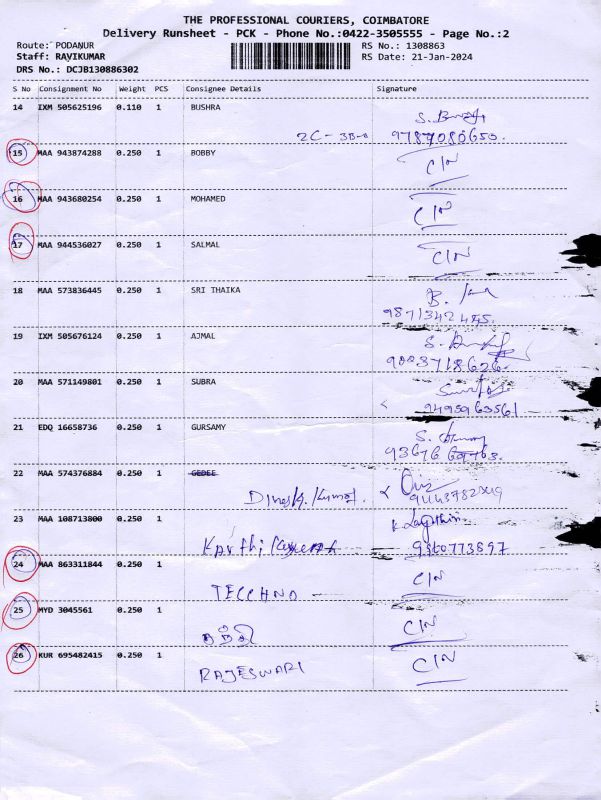 THE PROFESSIONAL COURIERS, COIMBATORE
Delivery Runsheet - PCK - Phone No.:0422-3505555 - Page No.:2
Route: PODANUR RS No.: 1308863
Staff: RAVIKUMAR RS Date: 21-Jan-2024
DRS No.: DCJB130886302
S No Consignment No Weight PCS Consignee Details Signature
14 IXM 505625196 0.110 1 BUSHRA
2C-3B-8 9787080650.
15 MAA 943874288 0.250 1 BOBBY C/N
16 MAA 943680254 0.250 1 MOHAMED C/N
17 MAA 944536027 0.250 1 SALMAL C/N
18 MAA 573836445 0.250 1 SRI THAIKA B.
19 IXM 505676124 0.250 1 AJMAL S.
20 MAA 571149801 0.250 1 SUBRA
9495963561
21 EDQ 16658736 0.250 1 GURSAMY S.
93676 69763.
22 MAA 574376884 0.250 1 GEDEE
Dinesh. Kumar.
23 MAA 108713800 0.250 1
24 MAA 863311844 0.250 1 TECCHNO C/N
25 MYD 3045561 0.250 1 C/N
26 KUR 695482415 0.250 1 RAJESWARI C/N